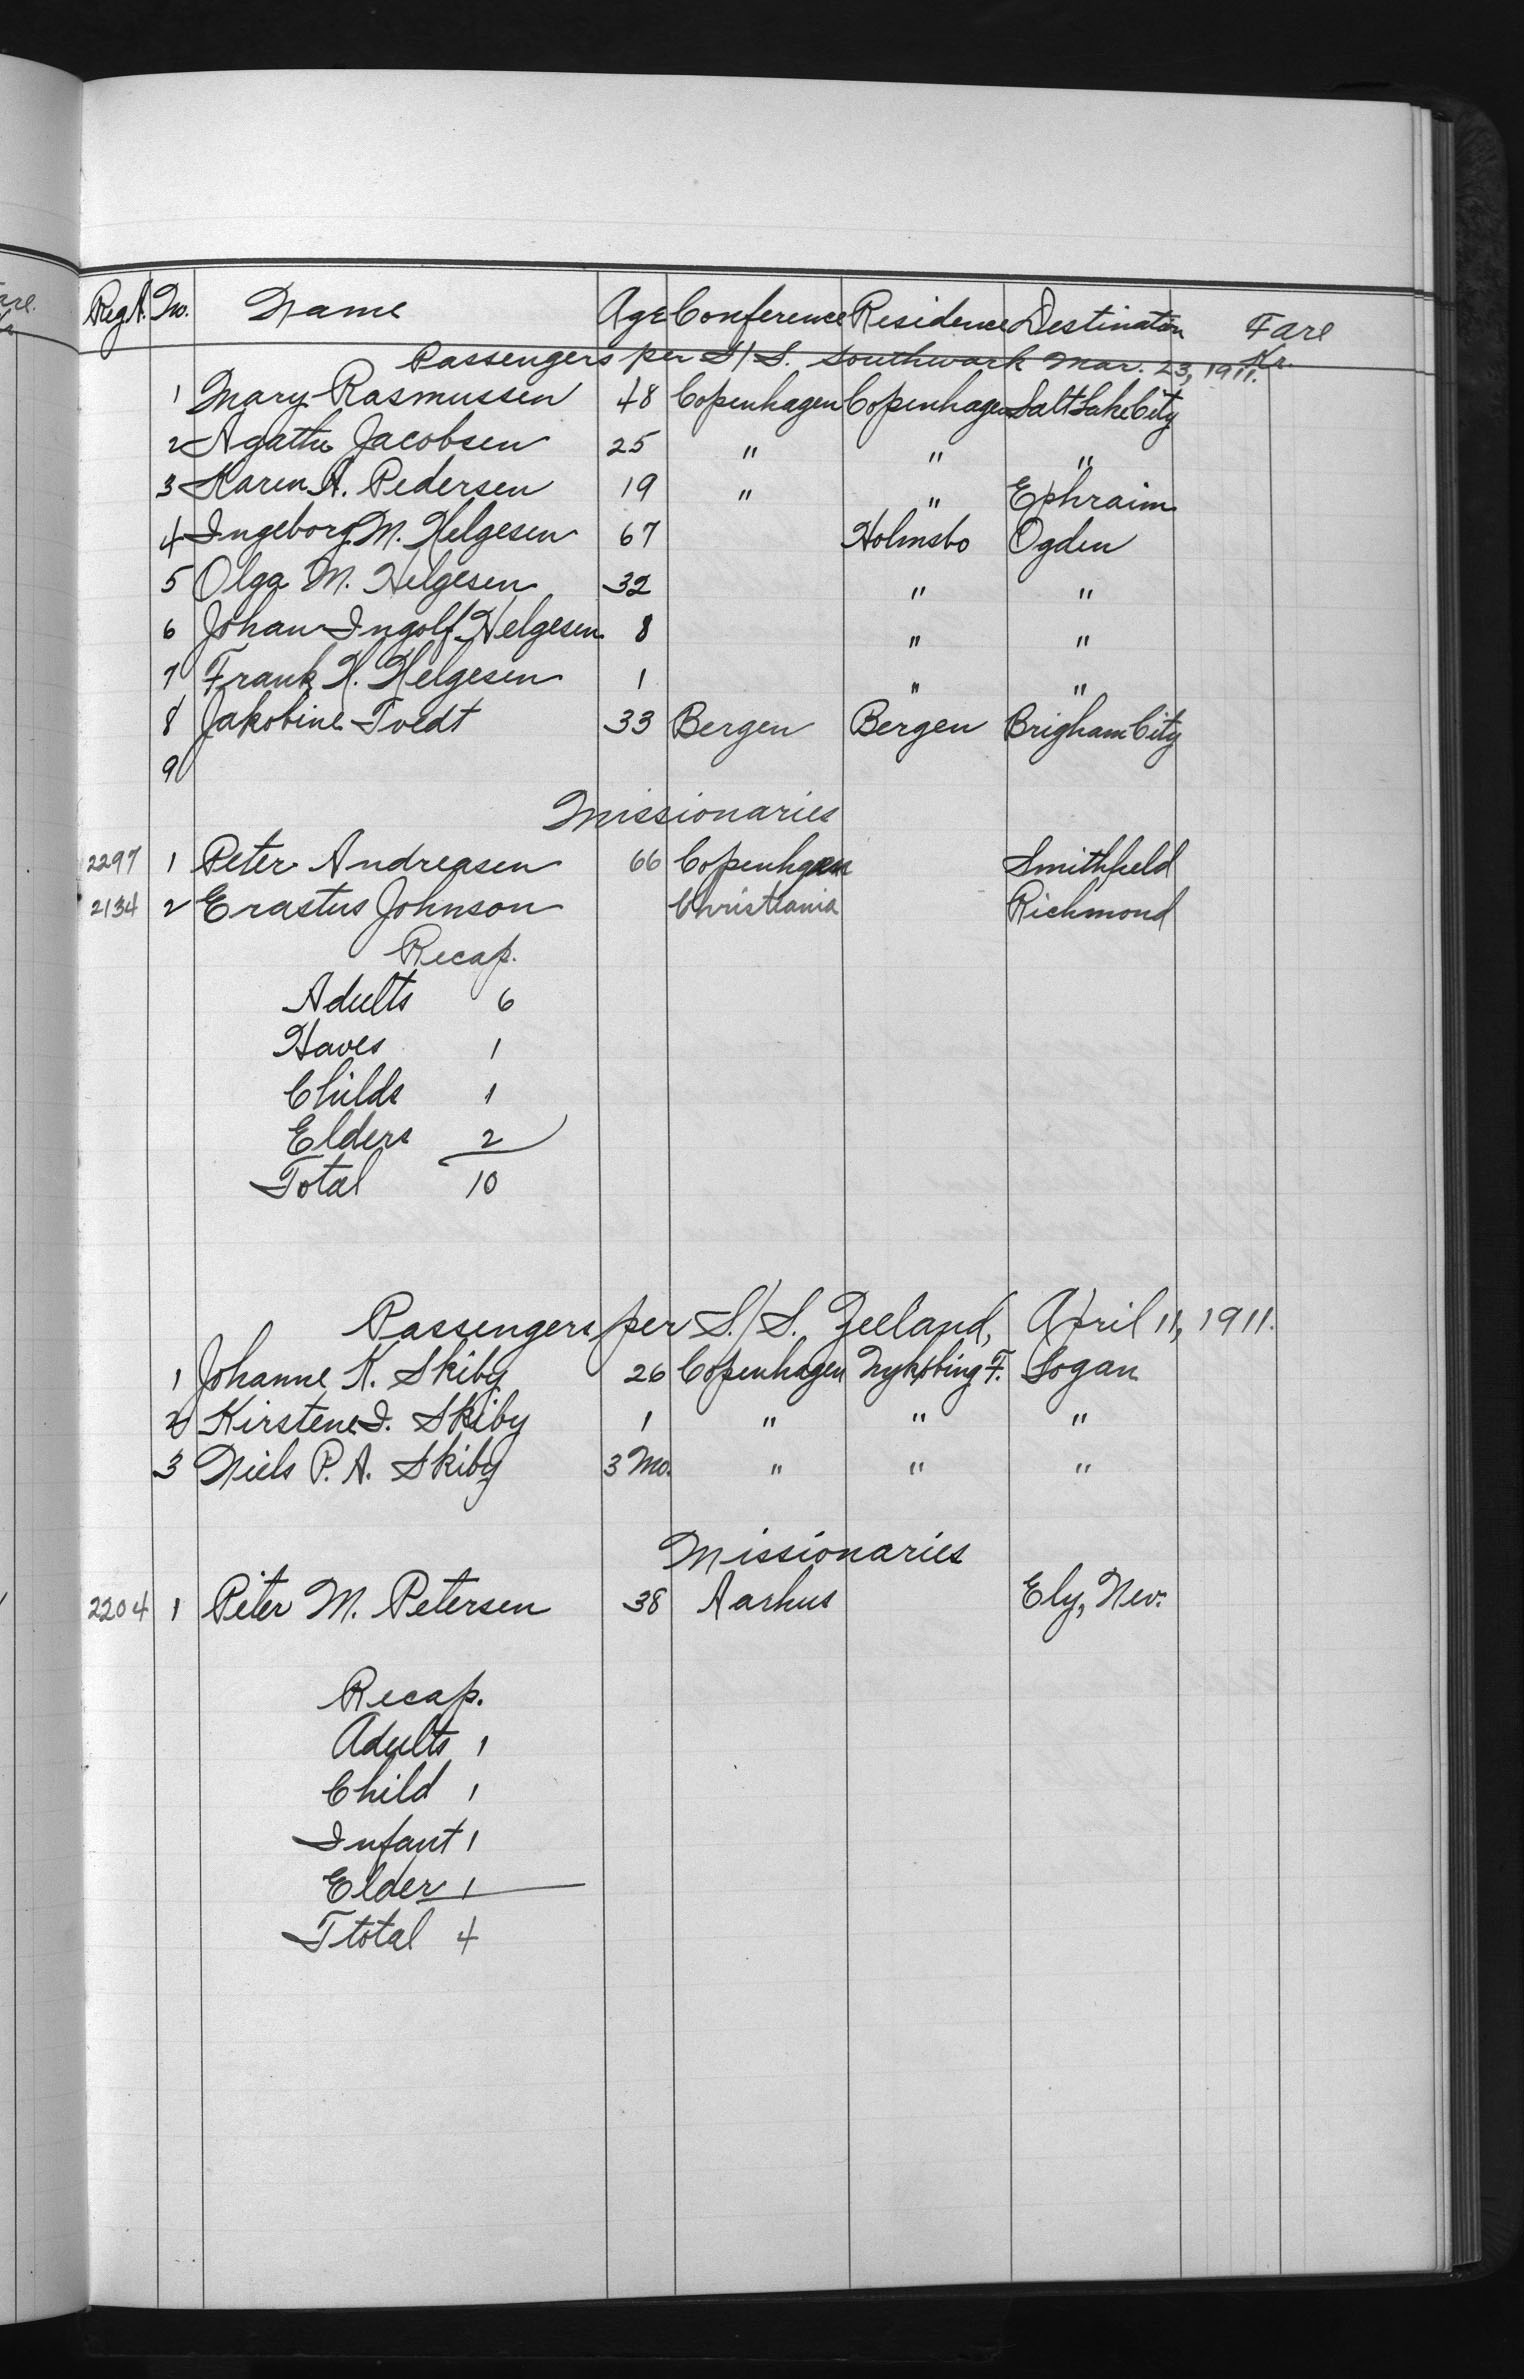 Reg A. No. Name Age Conference Residence Destination Fare
Kr.
Passengers per S/S. Southwark Mar. 23, 1911.
1 Mary Rasmussen 48 Copenhagen Copenhagen Salt Lake City
2 Agathe Jacobsen 25 " " "
3 Karen A. Pedersen 19 " " Ephraim
4 Ingeborg M. Helgesen 67 Holmsbo Ogden
5 Olga M. Helgesen 32 " "
6 Johan Ingolf Helgesen 8 " "
7 Frank H. Helgesen 1 " "
8 Jakobine Tvedt 33 Bergen Bergen Brigham City
9
Missionaries
2297 1 Peter Andreasen 66 Copenhgen Smithfield
2134 2 Erastus Johnson Christiania Richmond
Recap.
Adults 6
Haves 1
Childs 1
Elders 2
Total 10
Passengers per S./S. Zeeland, April 11, 1911.
1 Johanne K. Skiby 26 Copenhagen Nykøbing F. Logan
2 Kirstene I. Skiby 1 " " "
3 Niels P. A. Skiby 3 Mo. " " "
Missionaries
2204 1 Peter M. Petersen 38 Aarhus Ely, Nev.
Recap.
Adults 1
Child 1
Infant 1
Elder 1
Ttotal 4